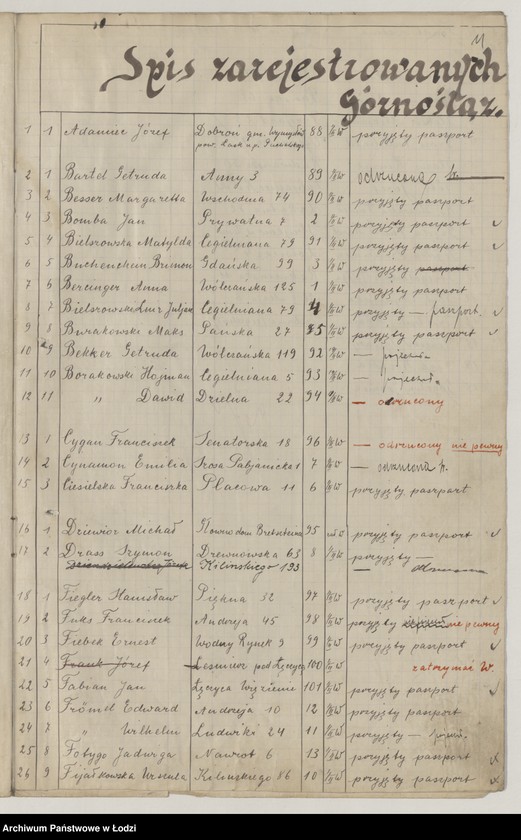 11
Spis zarejestrowanych
Górnośląz.
1 1 Adamiec Józef Dobroń gm. Wymysłów 88 przyjęty paszport
pow. Łask
2 1 Bartel Getruda Anny 3 89 odrzucona
3 2 Besser Margaretta Wschodnia 74 90 przyjęty paszport
4 3 Bomba Jan Prywatna 7 2 przyjęty paszport v
5 4 Bielszowska Matylda Cegielniana 79 91 przyjęty paszport v
6 5 Gdańska 99 3 przyjęty paszport
7 6 Berzinger Anna Wólczańska 125 1 przyjęty paszport
8 7 Bielszowski Cegielniana 79 4 przyjęty — paszport. v
9 8 Burakowski Maks Pańska 27 85 przyjęty paszport v
10 9 Bekker Getruda Wólczańska 119 92 —
11 10 Borakowski Hojman Cegielniana 5 93 —
12 11 „ Dawid Dzielna 22 94 — odrzucony
13 1 Cygan Franciszek Senatorska 18 96 — odrzucony nie pewny
14 2 Cynamon Emilia Szosa Pabjanicka 1 7 — odrzucona p.
15 3 Ciesielska Franciszka Placowa 11 6 przyjęty paszport
16 1 Dziewior Michał 95 przyjęty paszport v
17 2 Drass Szymon Drewnowska 63 8 przyjęty —
Kilińskiego 193 —
18 1 Fiegler Stanisław Piękna 32 97 przyjęty paszport v
19 2 Fuks Franciszek Andrzeja 45 98 przyjęty nie pewny
20 3 Fiebek Ernest Wodny Rynek 9 99 przyjęty paszport v
21 4 Frank Józef Leśmierz pod Łęczycą 100 zatrzymać W.
22 5 Fabian Jan Łęczyca Więzienie 101 przyjęty paszport v
23 6 Frömel Edward Andrzeja 10 12 przyjęty paszport
24 7 „ Wilhelm Ludwiki 24 11 przyjęty —
25 8 Fobygo Jadwiga Nawrot 6 13 przyjęty paszport v
26 9 Fijałkowska Ursula Kilińskiego 86 10 przyjęty paszport v
Archiwum Państwowe w Łodzi